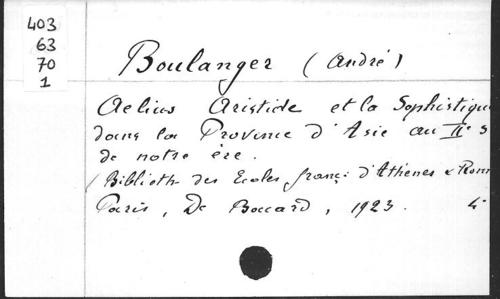 403
63
70
1
Boulanger (André)
Aelius Aristide et la Sophistiqu
dans la Province d'Asie au IIe s
de notre ère.
(Biblioth des Ecoles franç. d'Athènes & Rom
Paris, De Boccard, 1923. 4°